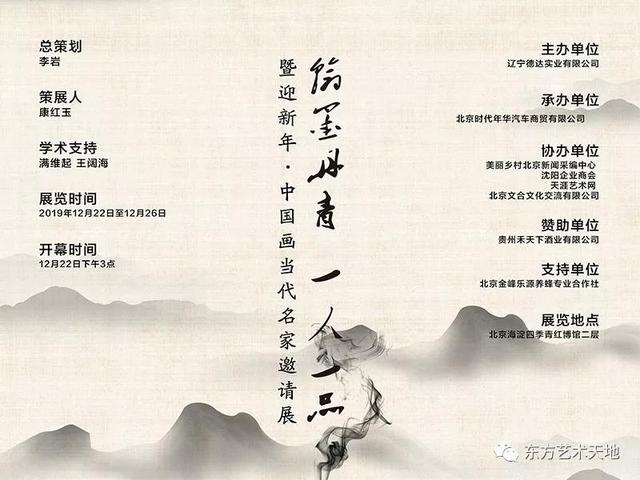 总策划
李岩
策展人
康红玉
学术支持
满维起 王阔海
展览时间
2019年12月22日至12月26日
开幕时间
12月22日下午3点
翰墨丹青 一人一品
暨迎新年·中国画当代名家邀请展
主办单位
辽宁德达实业有限公司
承办单位
北京时代年华汽车商贸有限公司
协办单位
美丽乡村北京新闻采编中心
沈阳企业商会
天涯艺术网
北京文合文化交流有限公司
赞助单位
贵州禾天下酒业有限公司
支持单位
北京金峰乐源养蜂专业合作社
展览地点
北京海淀四季青红博馆二层
东方艺术天地